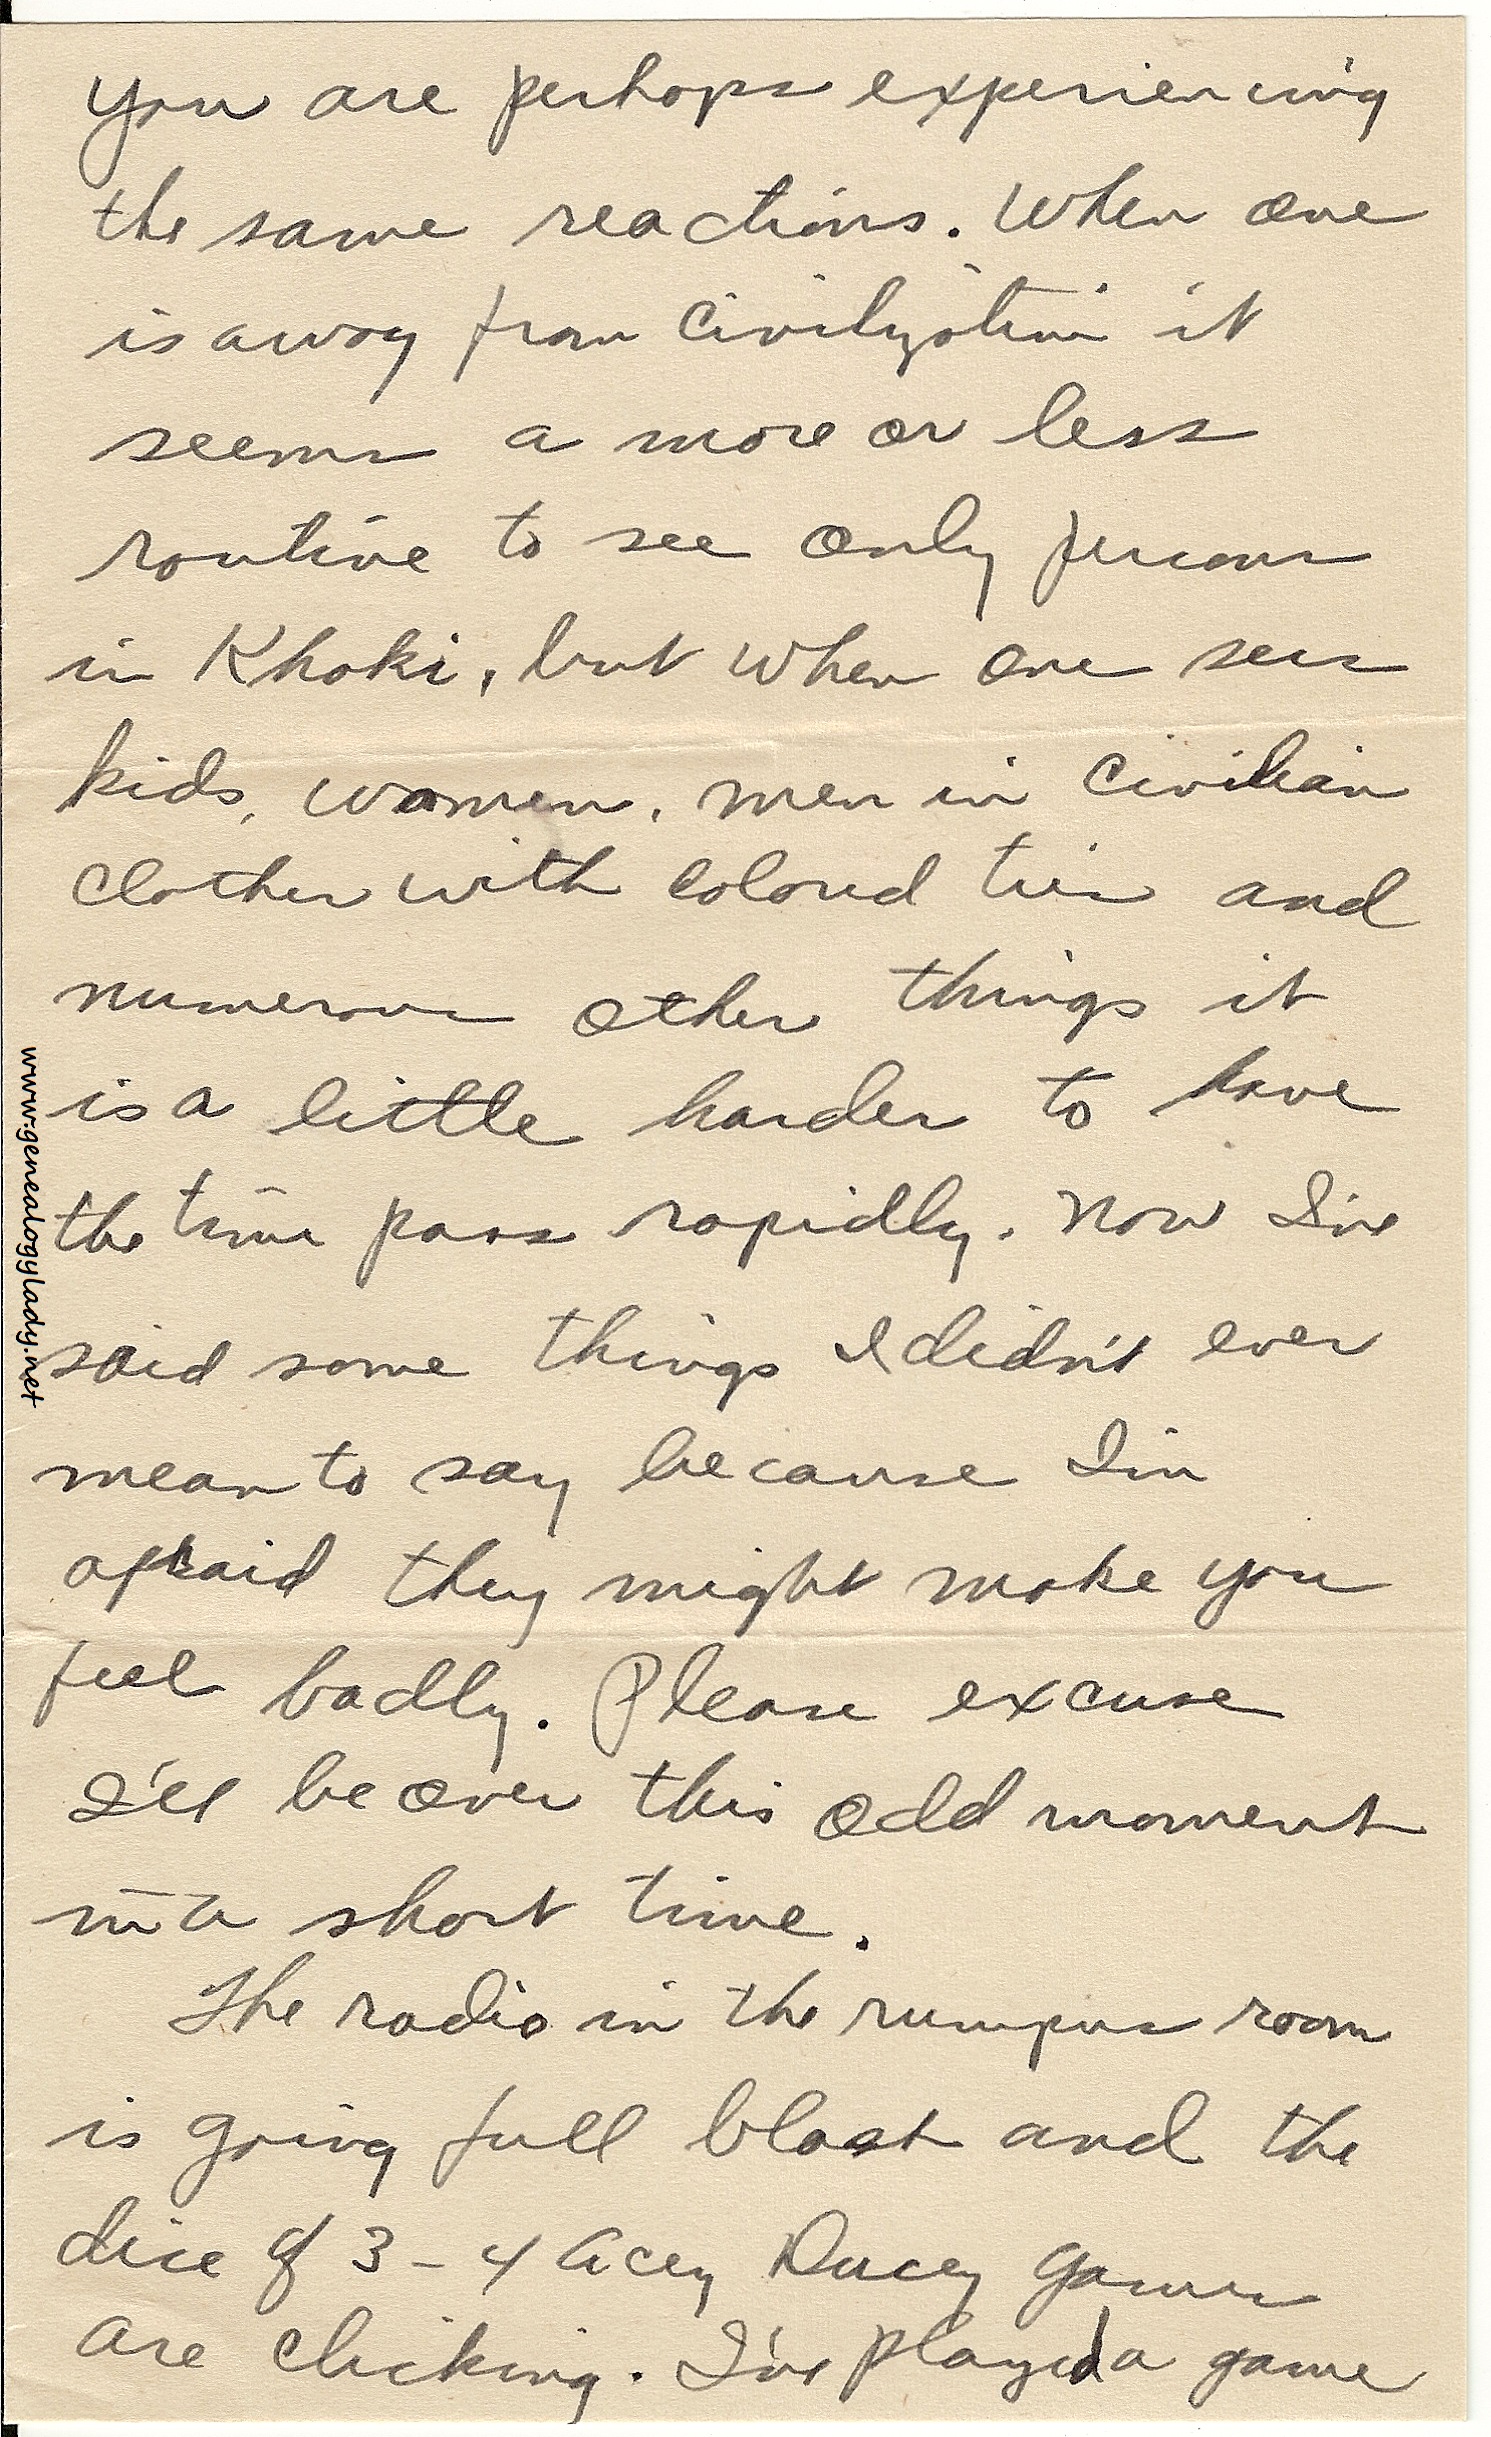 you are perhaps experiencing
the same reactions. When one
is away from Civilization it
seems a more or less
routine to see only persons
in Khaki, but when one sees
kids, women, men in civilian
clothes with colored ties and
numerous other things it
is a little harder to have
the time pass rapidly. Now I've
said some things I didn't ever
mean to say because I'm
afraid they might make you
feel badly. Please excuse
I'll be over this odd moment
in a short time.
The radio in the rumpus room
is going full blast and the
dice of 3-4 Acey Ducey games
are clicking. I've played a game
www.genealogylady.net